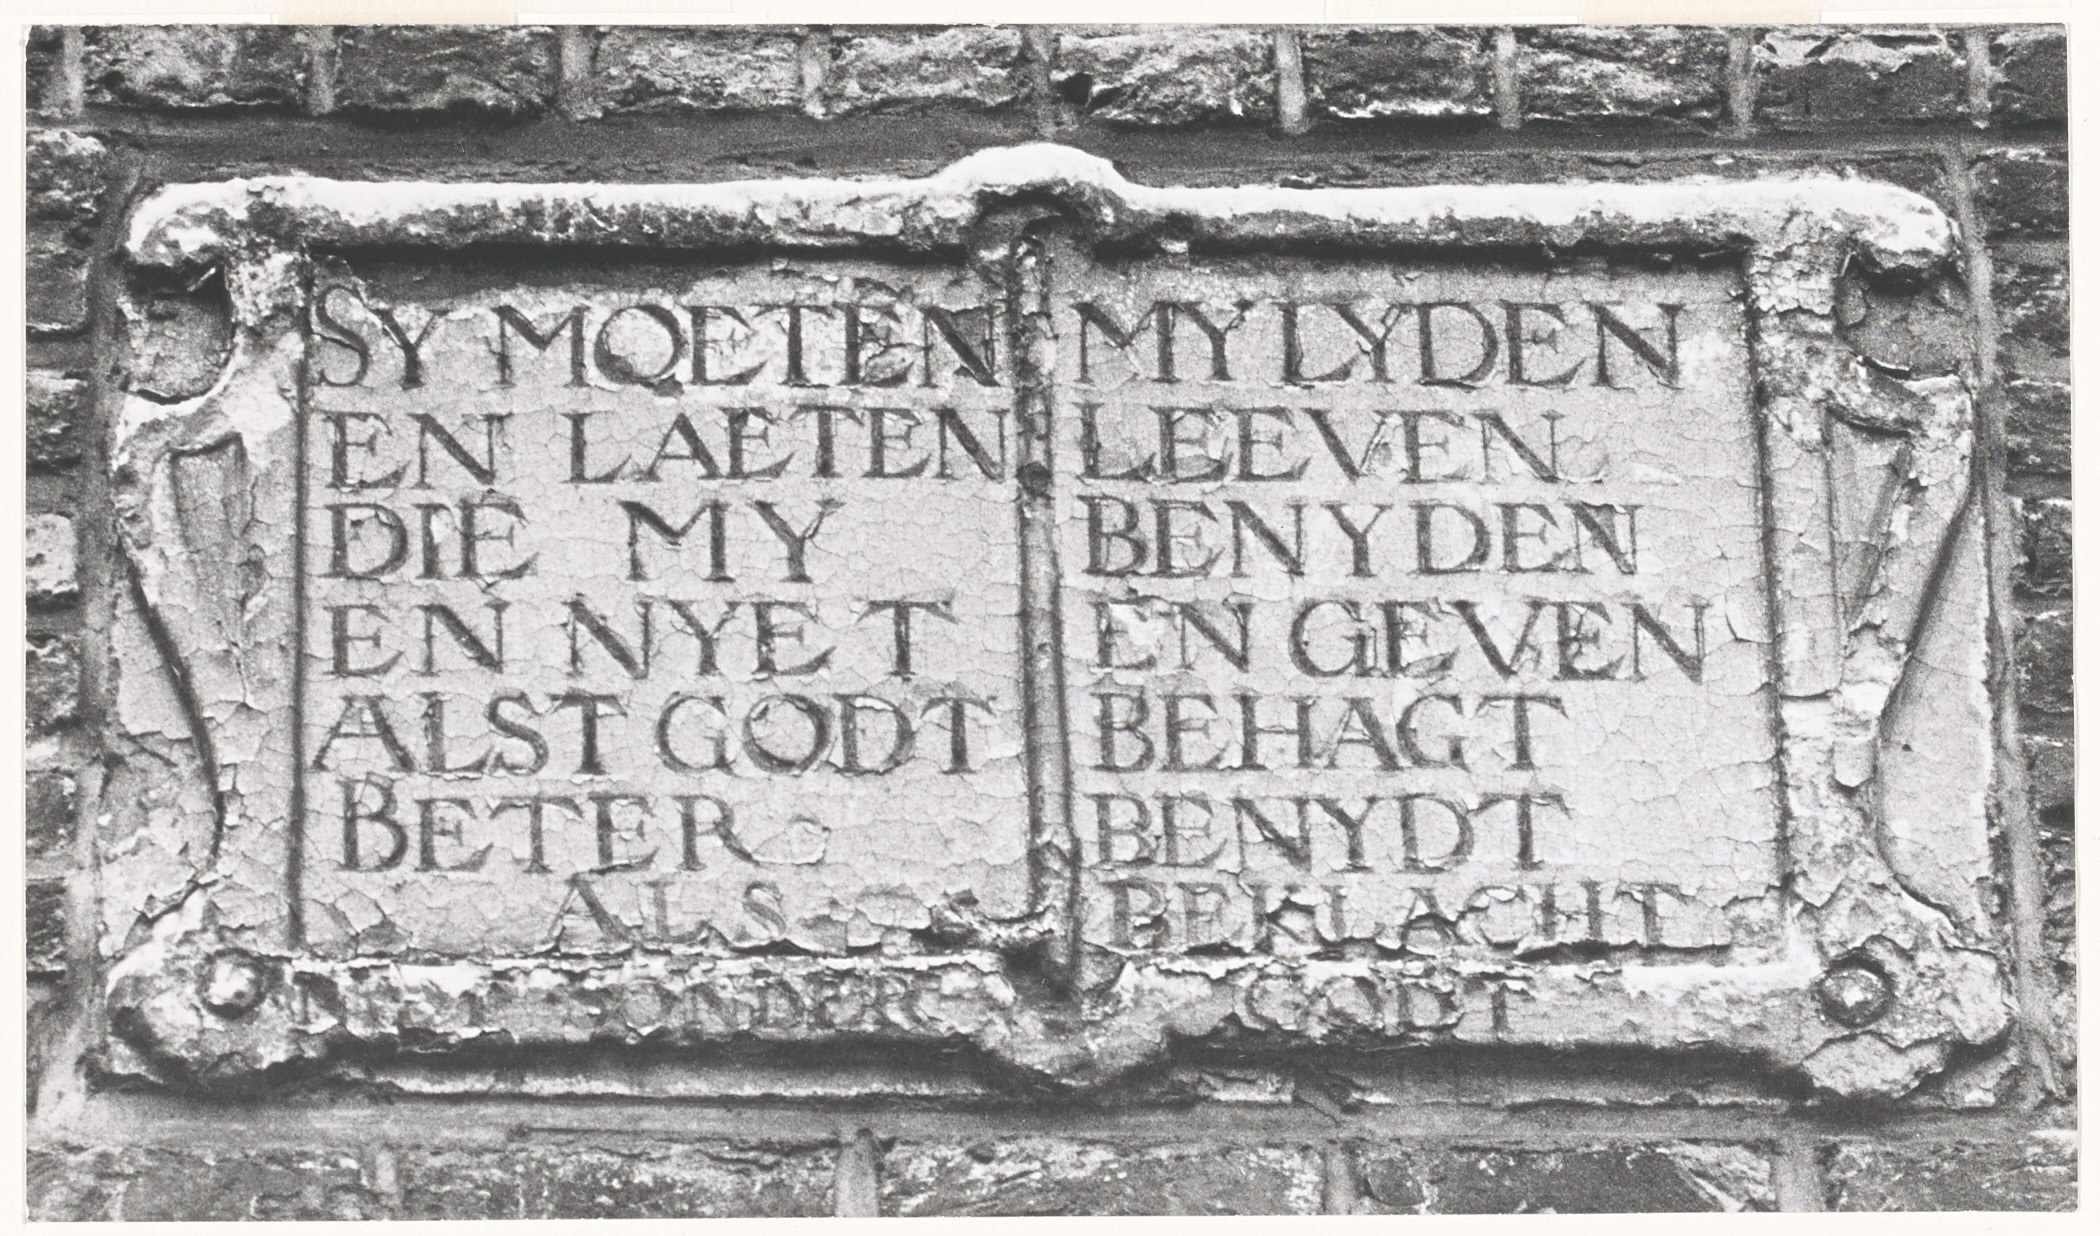 SY MOETEN MY LYDEN
EN LAETEN LEEVEN
DIE MY BENYDEN
EN NYET EN GEVEN
ALST GODT BEHAGT
BETER BENYDT
ALS BEKLACHT
NIET SONDER GODT